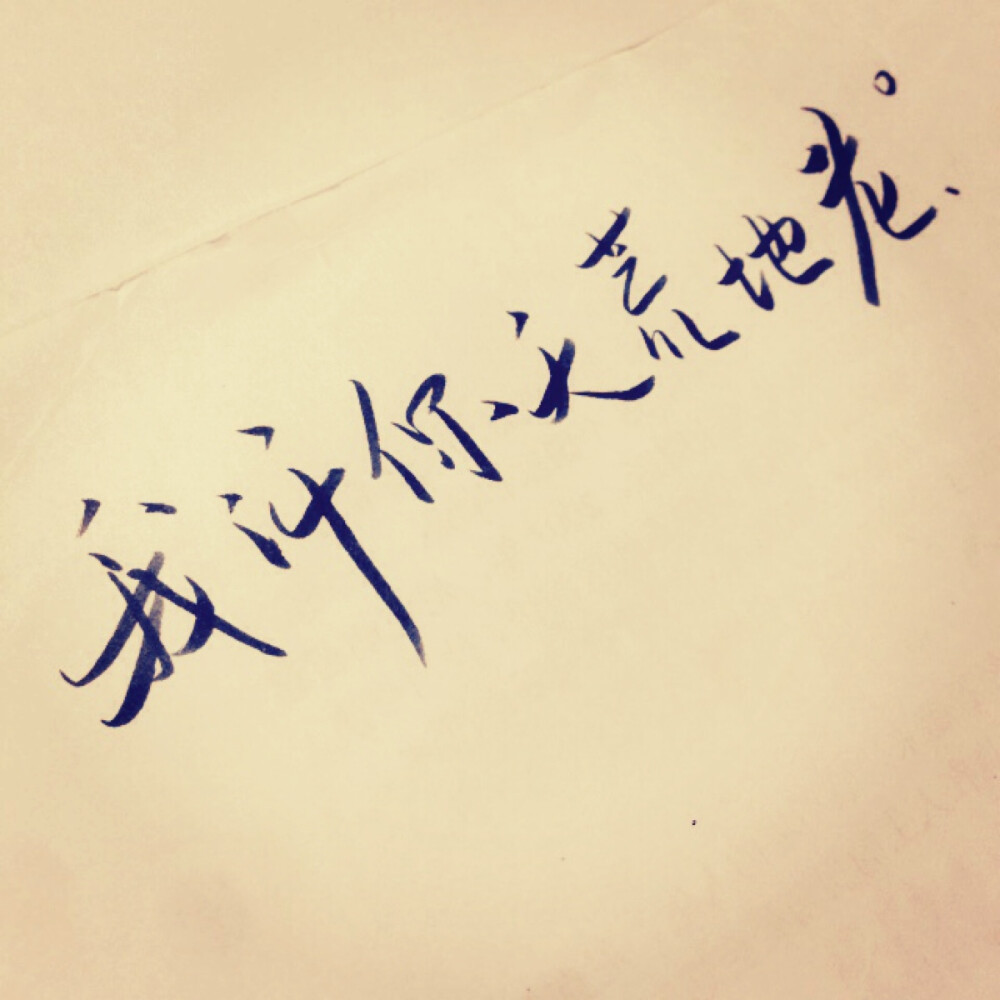 我许你天荒地老。